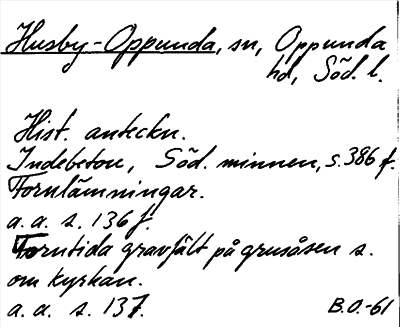 Husby-Oppunda, sn, Oppunda
hd, Söd. l.
Hist. anteckn.
Indebetou, Söd. minnen, s. 386 f.
Fornlämningar.
a. a. s. 136 f.
Forntida gravfält på grusåsen s.
om kyrkan.
a. a. s. 137.
B.O.-61